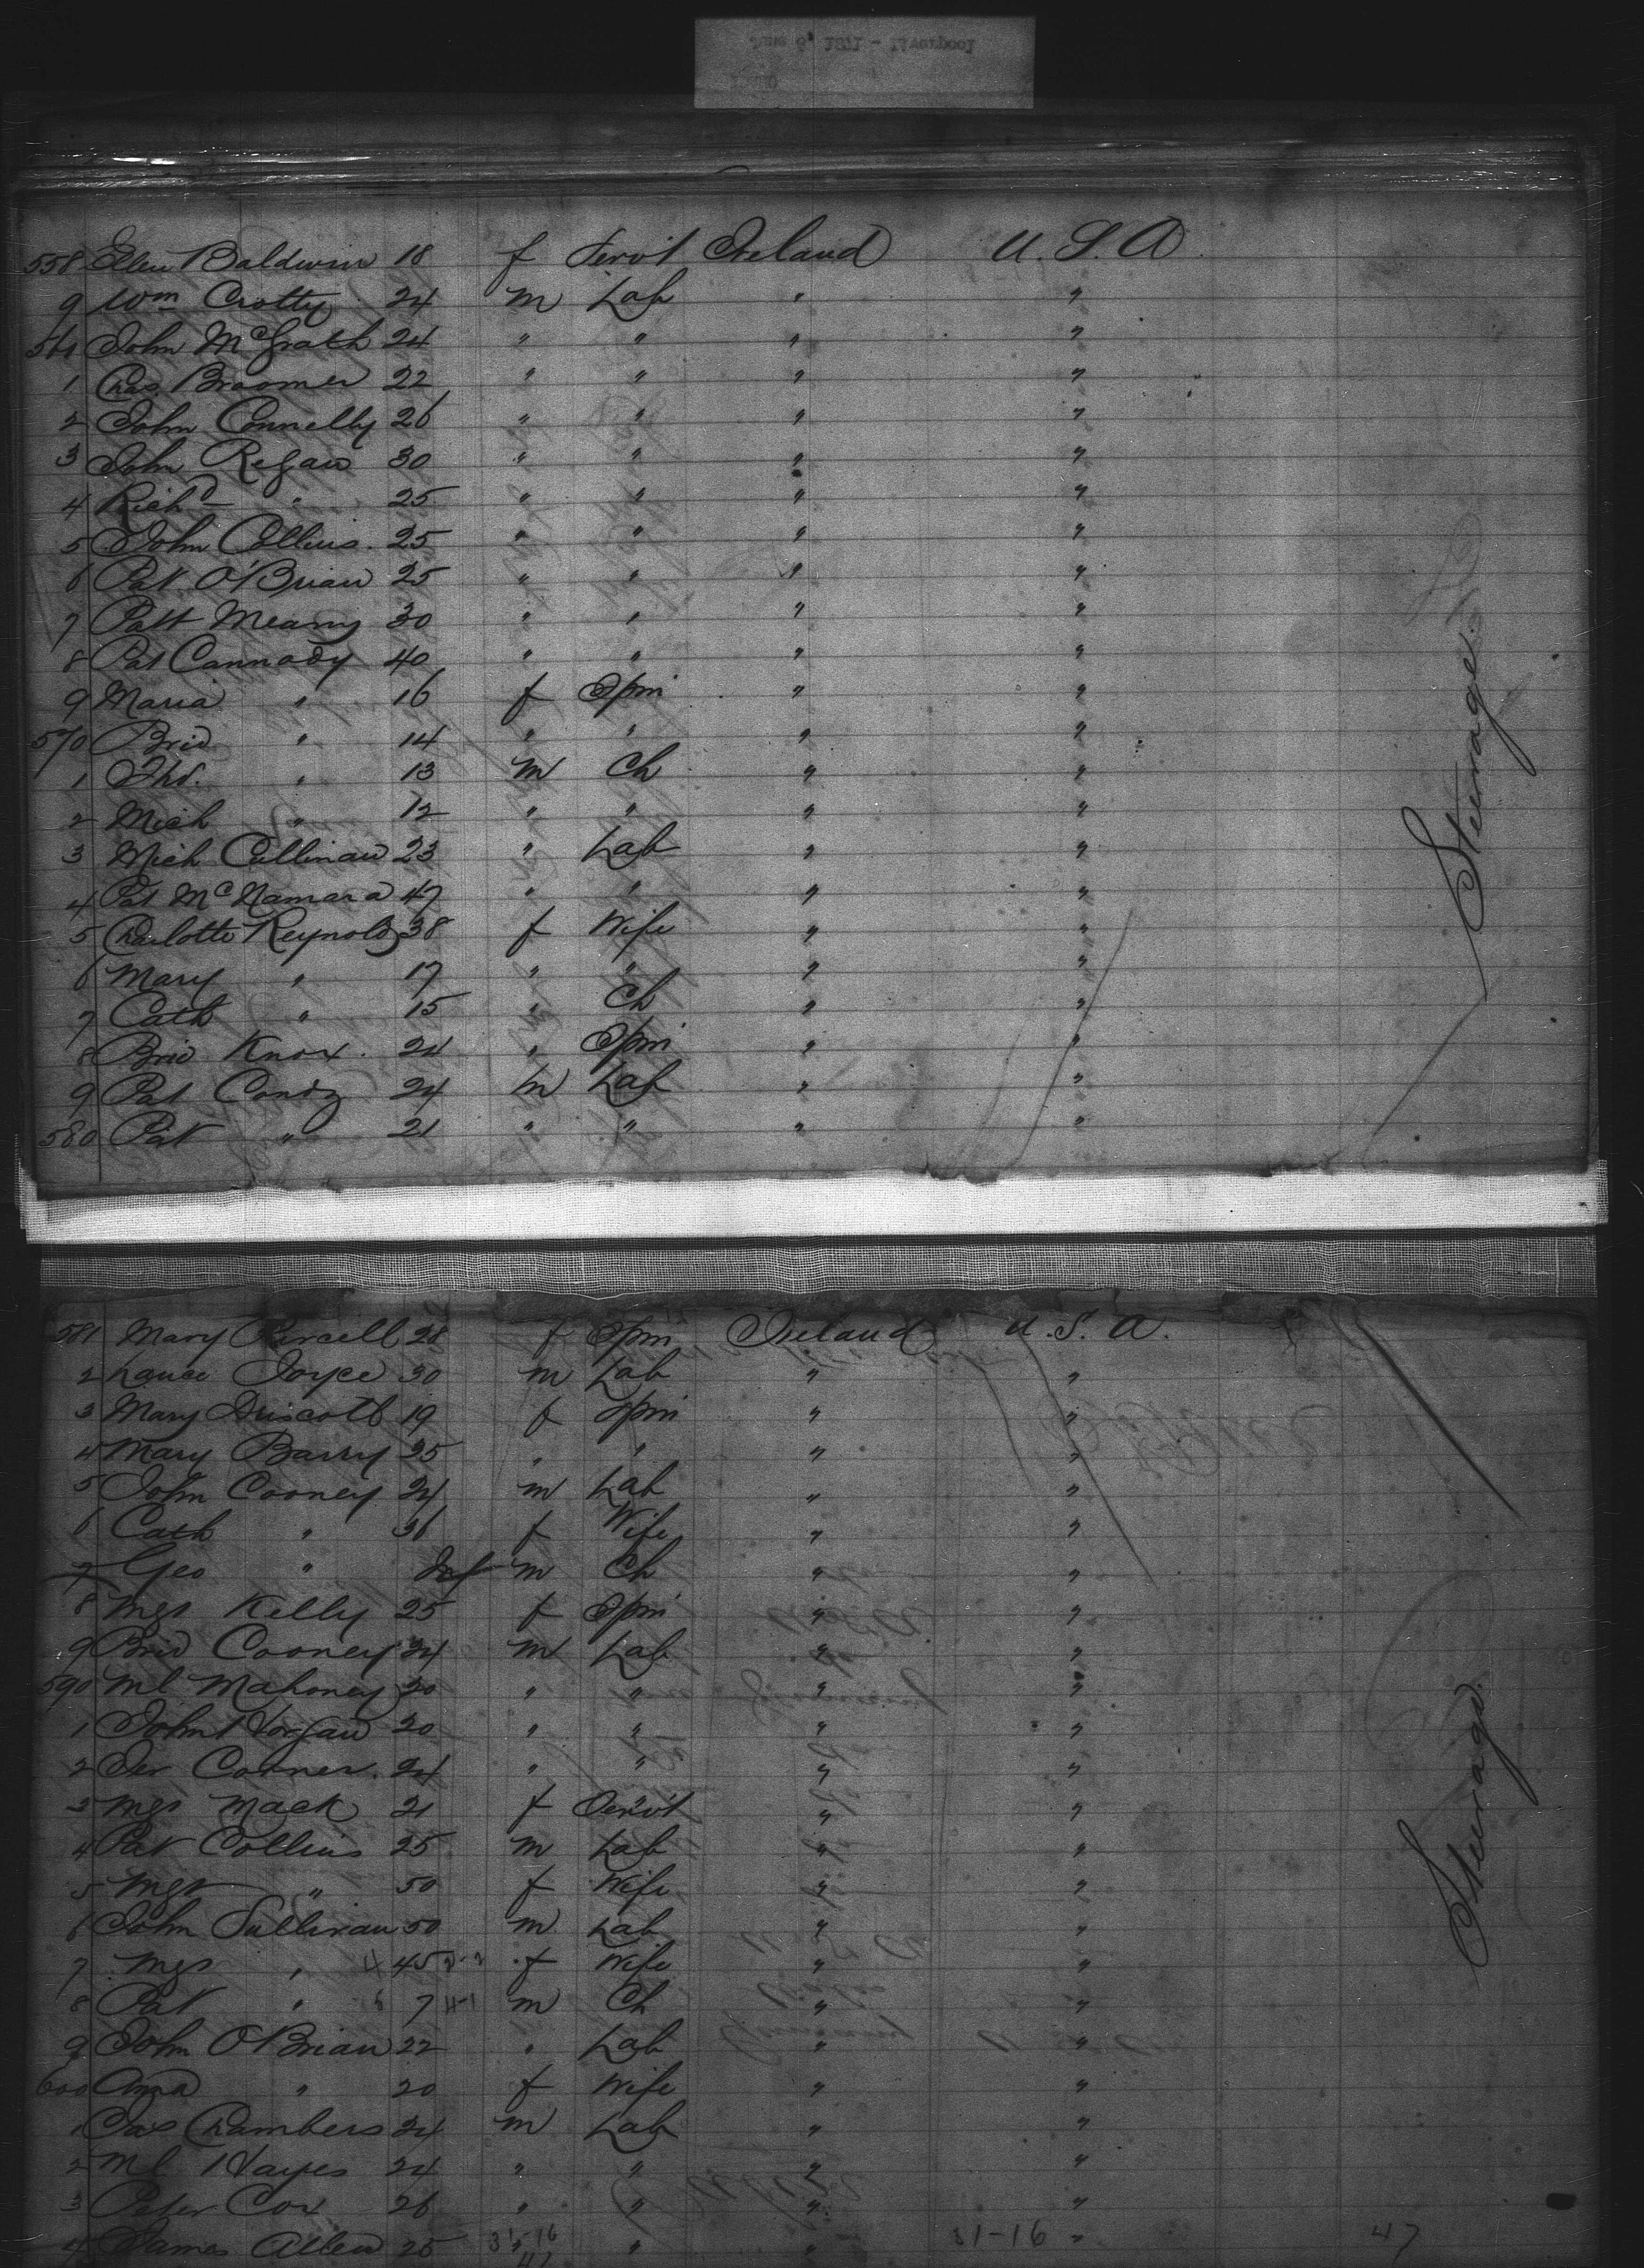 June 6, 1871 - Liverpool
558 Ellen Baldwin 18 f Servt Ireland U.S.A.
9 Wm Crotty 24 m Lab " "
561 John McGrath 24 " " " "
1 Chas. Broomer 22 " " " "
2 John Connelly 26 " " " "
3 John Regan 30 " " " "
4 Richd " 25 " " " "
5 John Collins. 25 " " " "
6 Pat. O'Brian 25 " " " "
7 Patt Meany 30 " " " "
8 Pat Cannady 40 " " " "
9 Maria " 16 f Spin " "
570 Brid " 14 " " " "
1 Tho. " 13 m Ch " "
2 Mich " 12 " " " "
3 Mich Cullinan 23 " Lab " "
4 Pat McNamara 47 " " " "
5 Charlotte Reynolds 38 f Wife " "
6 Mary " 17 " " " "
7 Cath " 15 " Ch " "
8 Brid Knox. 24 " Spin " "
9 Pat 24 m Lab " "
580 Pat " 21 " " " "
Steerage.
581 Mary Purcell 28 f Spin Ireland U.S.A.
2 Joyce 30 m Lab " "
3 Mary Driscoll 19 f Spin " "
4 Mary Barry 25 " " " "
5 John Cooney 24 m Lab " "
6 Cath " 36 f Wife " "
7 Geo " Inf m Ch " "
8 Mgt Kelly 25 f Spin " "
9 Brid Cooney 24 m Lab " "
590 Ml Mahoney 20 " " " "
1 John Horgan 20 " " " "
2 Conner. 24 " " " "
3 Mgt Mack 21 f Servt " "
4 Pat Collins 25 m Lab " "
5 Mgt " 50 f Wife " "
6 John Sullivan 50 m Lab " "
7 Mgt " 45 f Wife " "
8 Pat " 7 m Ch " "
9 John O'Brian 22 " Lab " "
600 Ann " 20 f Wife " "
1 Jas Chambers 24 m Lab " "
2 Ml Hayes 24 " " " "
3 Peter Cox 26 " " " "
4 James Allen 25 " " " " 31-16 47
Steerage.